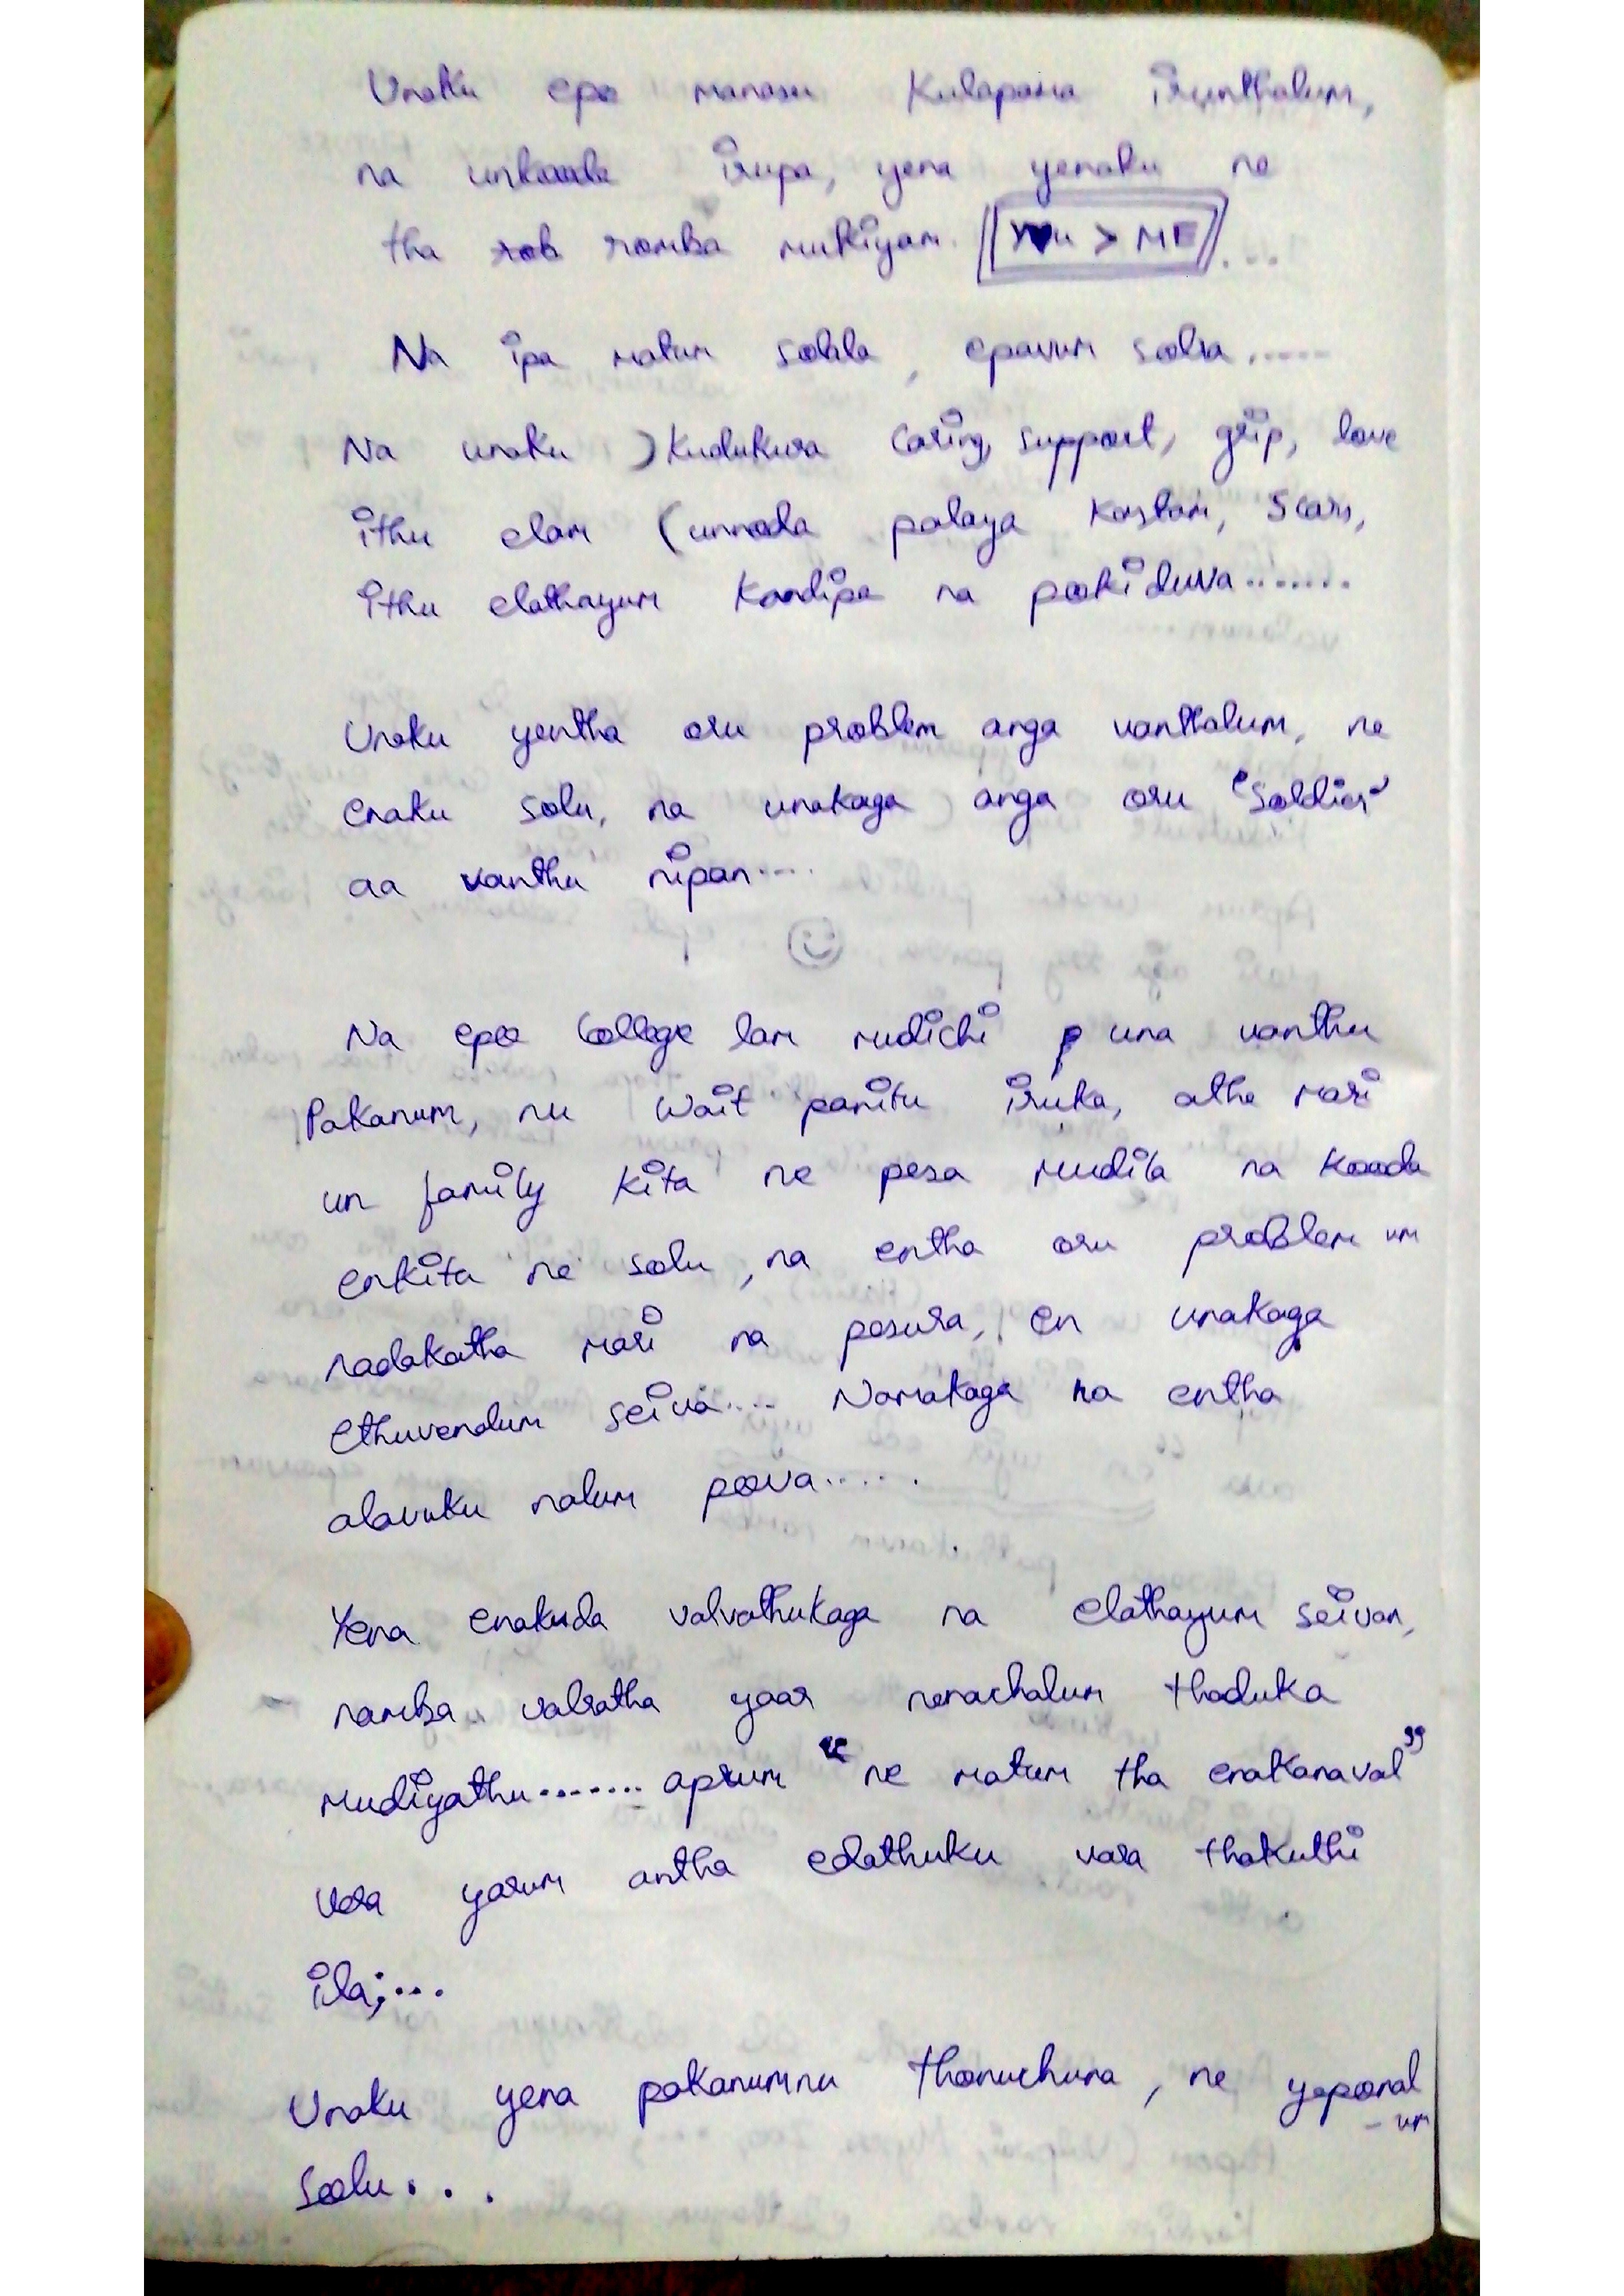 Unaku epo manasu Kulapama irunthalum,
na unkooda irupa, yena yenaku ne
tha romba mukiyam. Y♥u > ME ....
Na ipa matum solila, epavum solva.....
Na unaku Kudukura Caring, support, grip, love
ithu elam (unnoda palaya Kastam, Scars,
ithu elathayum Kandipa na pookiduva.......
Unaku yentha oru problem anga vanthalum, ne
enaku solu, na unakaga anga oru "Soldier"
aa vanthu nipan....
Na epo College lam mudichi una vanthu
Pakanum, nu Wait panitu iruka, atha mari
un family Kita ne pesa mudila na Kooda
enkita ne solu, na entha oru problem um
nadakatha mari na pesura, en unakaga
ethuvendum seiva.... Namakaga na entha
alavuku nalum poova.....
Yena enakuda valvathukaga na elathayum seivan,
namba valratha yaar nenachalum thaduka
mudiyathu....... aprum "ne matum tha enakanaval"
vera yarum antha edathuku vara thakuthi
ila;...
Unaku yena pakanumnu thonuchuna, ne yepoonal
-um
Soolu...